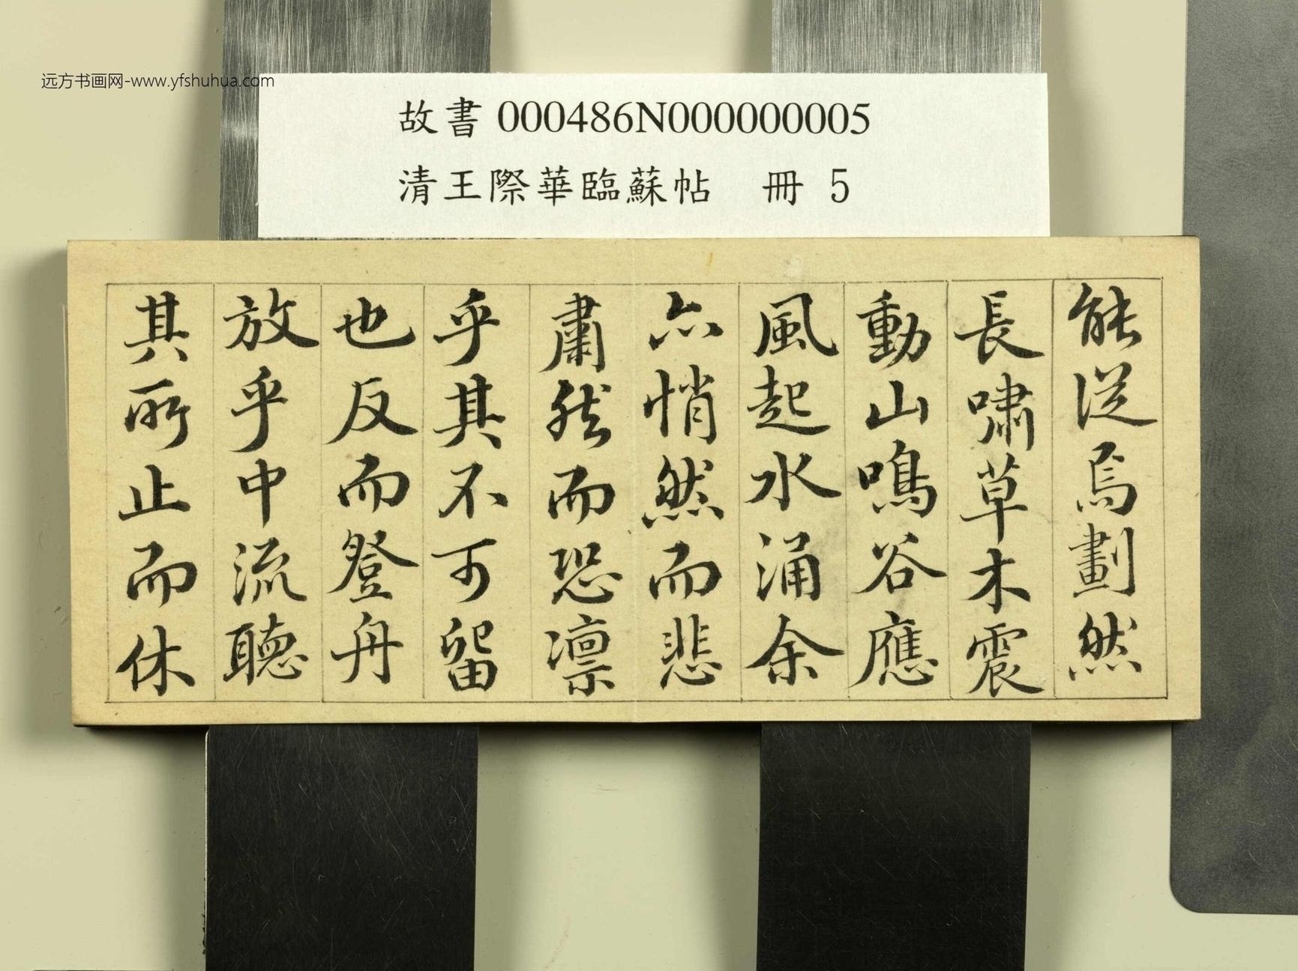 远方书画网-www.yfshuhua.com
故書 000486N000000005
清王際華臨蘇帖　冊 5
能從焉劃然
長嘯草木震
動山鳴谷應
風起水涌余
亦悄然而悲
肅然而恐凛
乎其不可留
也反而登舟
放乎中流聽
其所止而休